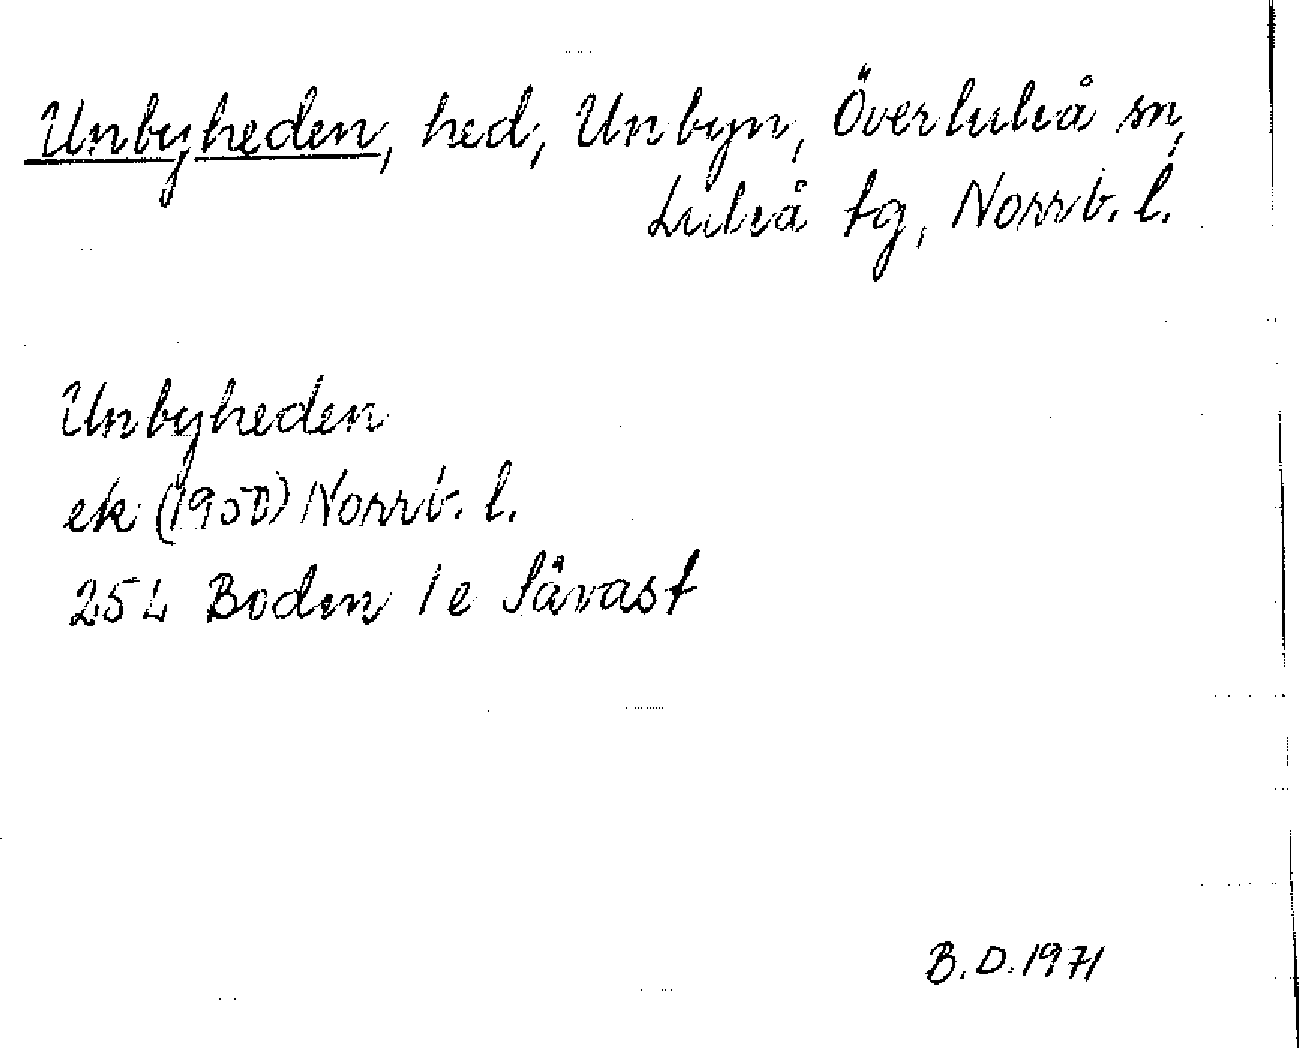 Unbyheden, hed, Unbyn, Överluleå sn,
Luleå tg, Norrb. l.
Unbyheden
ek (1950) Norrb. l.
25 L Boden 1 e Sävast
B.D. 1971